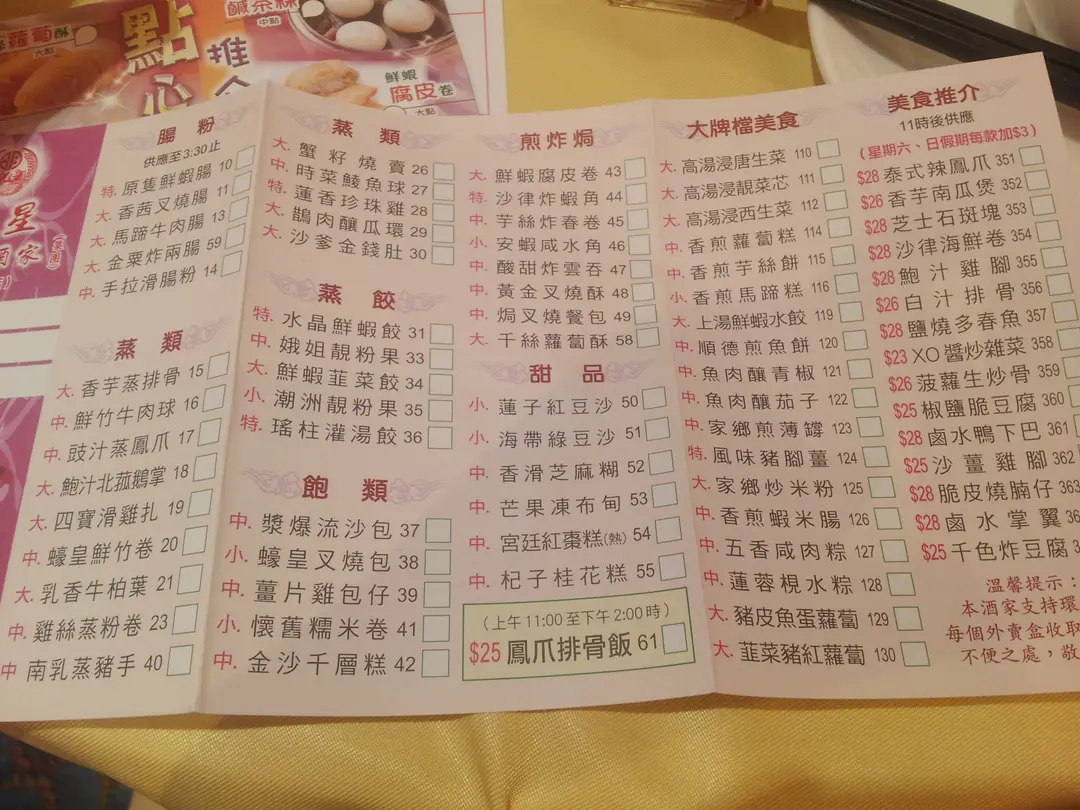 蘿蔔酥
大點
點心
推
鹹茶粿
中點
鮮蝦
腐皮卷
大點
星
酒家
腸 粉
供應至3:30止
特. 原隻鮮蝦腸 10
大. 香茜叉燒腸 11
大. 馬蹄牛肉腸 13
大. 金粟炸兩腸 59
中. 手拉滑腸粉 14
蒸 類
大. 香芋蒸排骨 15
中. 鮮竹牛肉球 16
中. 豉汁蒸鳳爪 17
大. 鮑汁北菰鵝掌 18
大. 四寶滑雞扎 19
中. 蠔皇鮮竹卷 20
大. 乳香牛柏葉 21
中. 雞絲蒸粉卷 23
中 南乳蒸豬手 40
蒸 類
大. 蟹籽燒賣 26
中. 時菜鯪魚球 27
特. 蓮香珍珠雞 28
大. 鵲肉釀瓜環 29
大. 沙爹金錢肚 30
蒸 餃
特. 水晶鮮蝦餃 31
中. 娥姐靚粉果 33
大. 鮮蝦韮菜餃 34
小. 潮洲靚粉果 35
特. 瑤柱灌湯餃 36
飽 類
中. 漿爆流沙包 37
小. 蠔皇叉燒包 38
中. 薑片雞包仔 39
小. 懷舊糯米卷 41
中. 金沙千層糕 42
煎炸焗
大. 鮮蝦腐皮卷 43
特. 沙律炸蝦角 44
中. 芋絲炸春卷 45
小. 安蝦咸水角 46
中. 酸甜炸雲吞 47
中. 黃金叉燒酥 48
中. 焗叉燒餐包 49
大. 千絲蘿蔔酥 58
甜 品
小. 蓮子紅豆沙 50
小. 海帶綠豆沙 51
中. 香滑芝麻糊 52
中. 芒果凍布甸 53
中. 宮廷紅棗糕(熱) 54
中. 杞子桂花糕 55
(上午11:00至下午2:00時)
$25 鳳爪排骨飯 61
大牌檔美食
大. 高湯浸唐生菜 110
大. 高湯浸靚菜芯 111
大. 高湯浸西生菜 112
中. 香煎蘿蔔糕 114
中. 香煎芋絲餅 115
小. 香煎馬蹄糕 116
大. 上湯鮮蝦水餃 119
中. 順德煎魚餅 120
中. 魚肉釀青椒 121
中. 魚肉釀茄子 122
中. 家鄉煎薄罉 123
特. 風味豬腳薑 124
大. 家鄉炒米粉 125
中. 香煎蝦米腸 126
中. 五香咸肉粽 127
中. 蓮蓉梘水粽 128
大. 豬皮魚蛋蘿蔔 129
大. 韮菜豬紅蘿蔔 130
美食推介
11時後供應
(星期六、日假期每款加$3)
$28 泰式辣鳳爪 351
$26 香芋南瓜煲 352
$28 芝士石斑塊 353
$28 沙律海鮮卷 354
$28 鮑汁雞腳 355
$26 白汁排骨 356
$28 鹽燒多春魚 357
$23 XO醬炒雜菜 358
$26 菠蘿生炒骨 359
$25 椒鹽脆豆腐 360
$28 鹵水鴨下巴 361
$25 沙薑雞腳 362
$28 脆皮燒腩仔 363
$28 鹵水掌翼
$25 千色炸豆腐
溫馨提示：
本酒家支持環
每個外賣盒收取
不便之處，敬